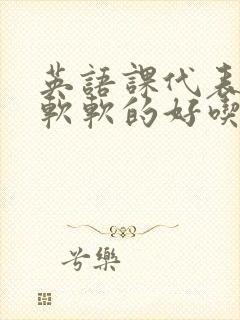 英語課代表
軟軟的好喫
兮樂